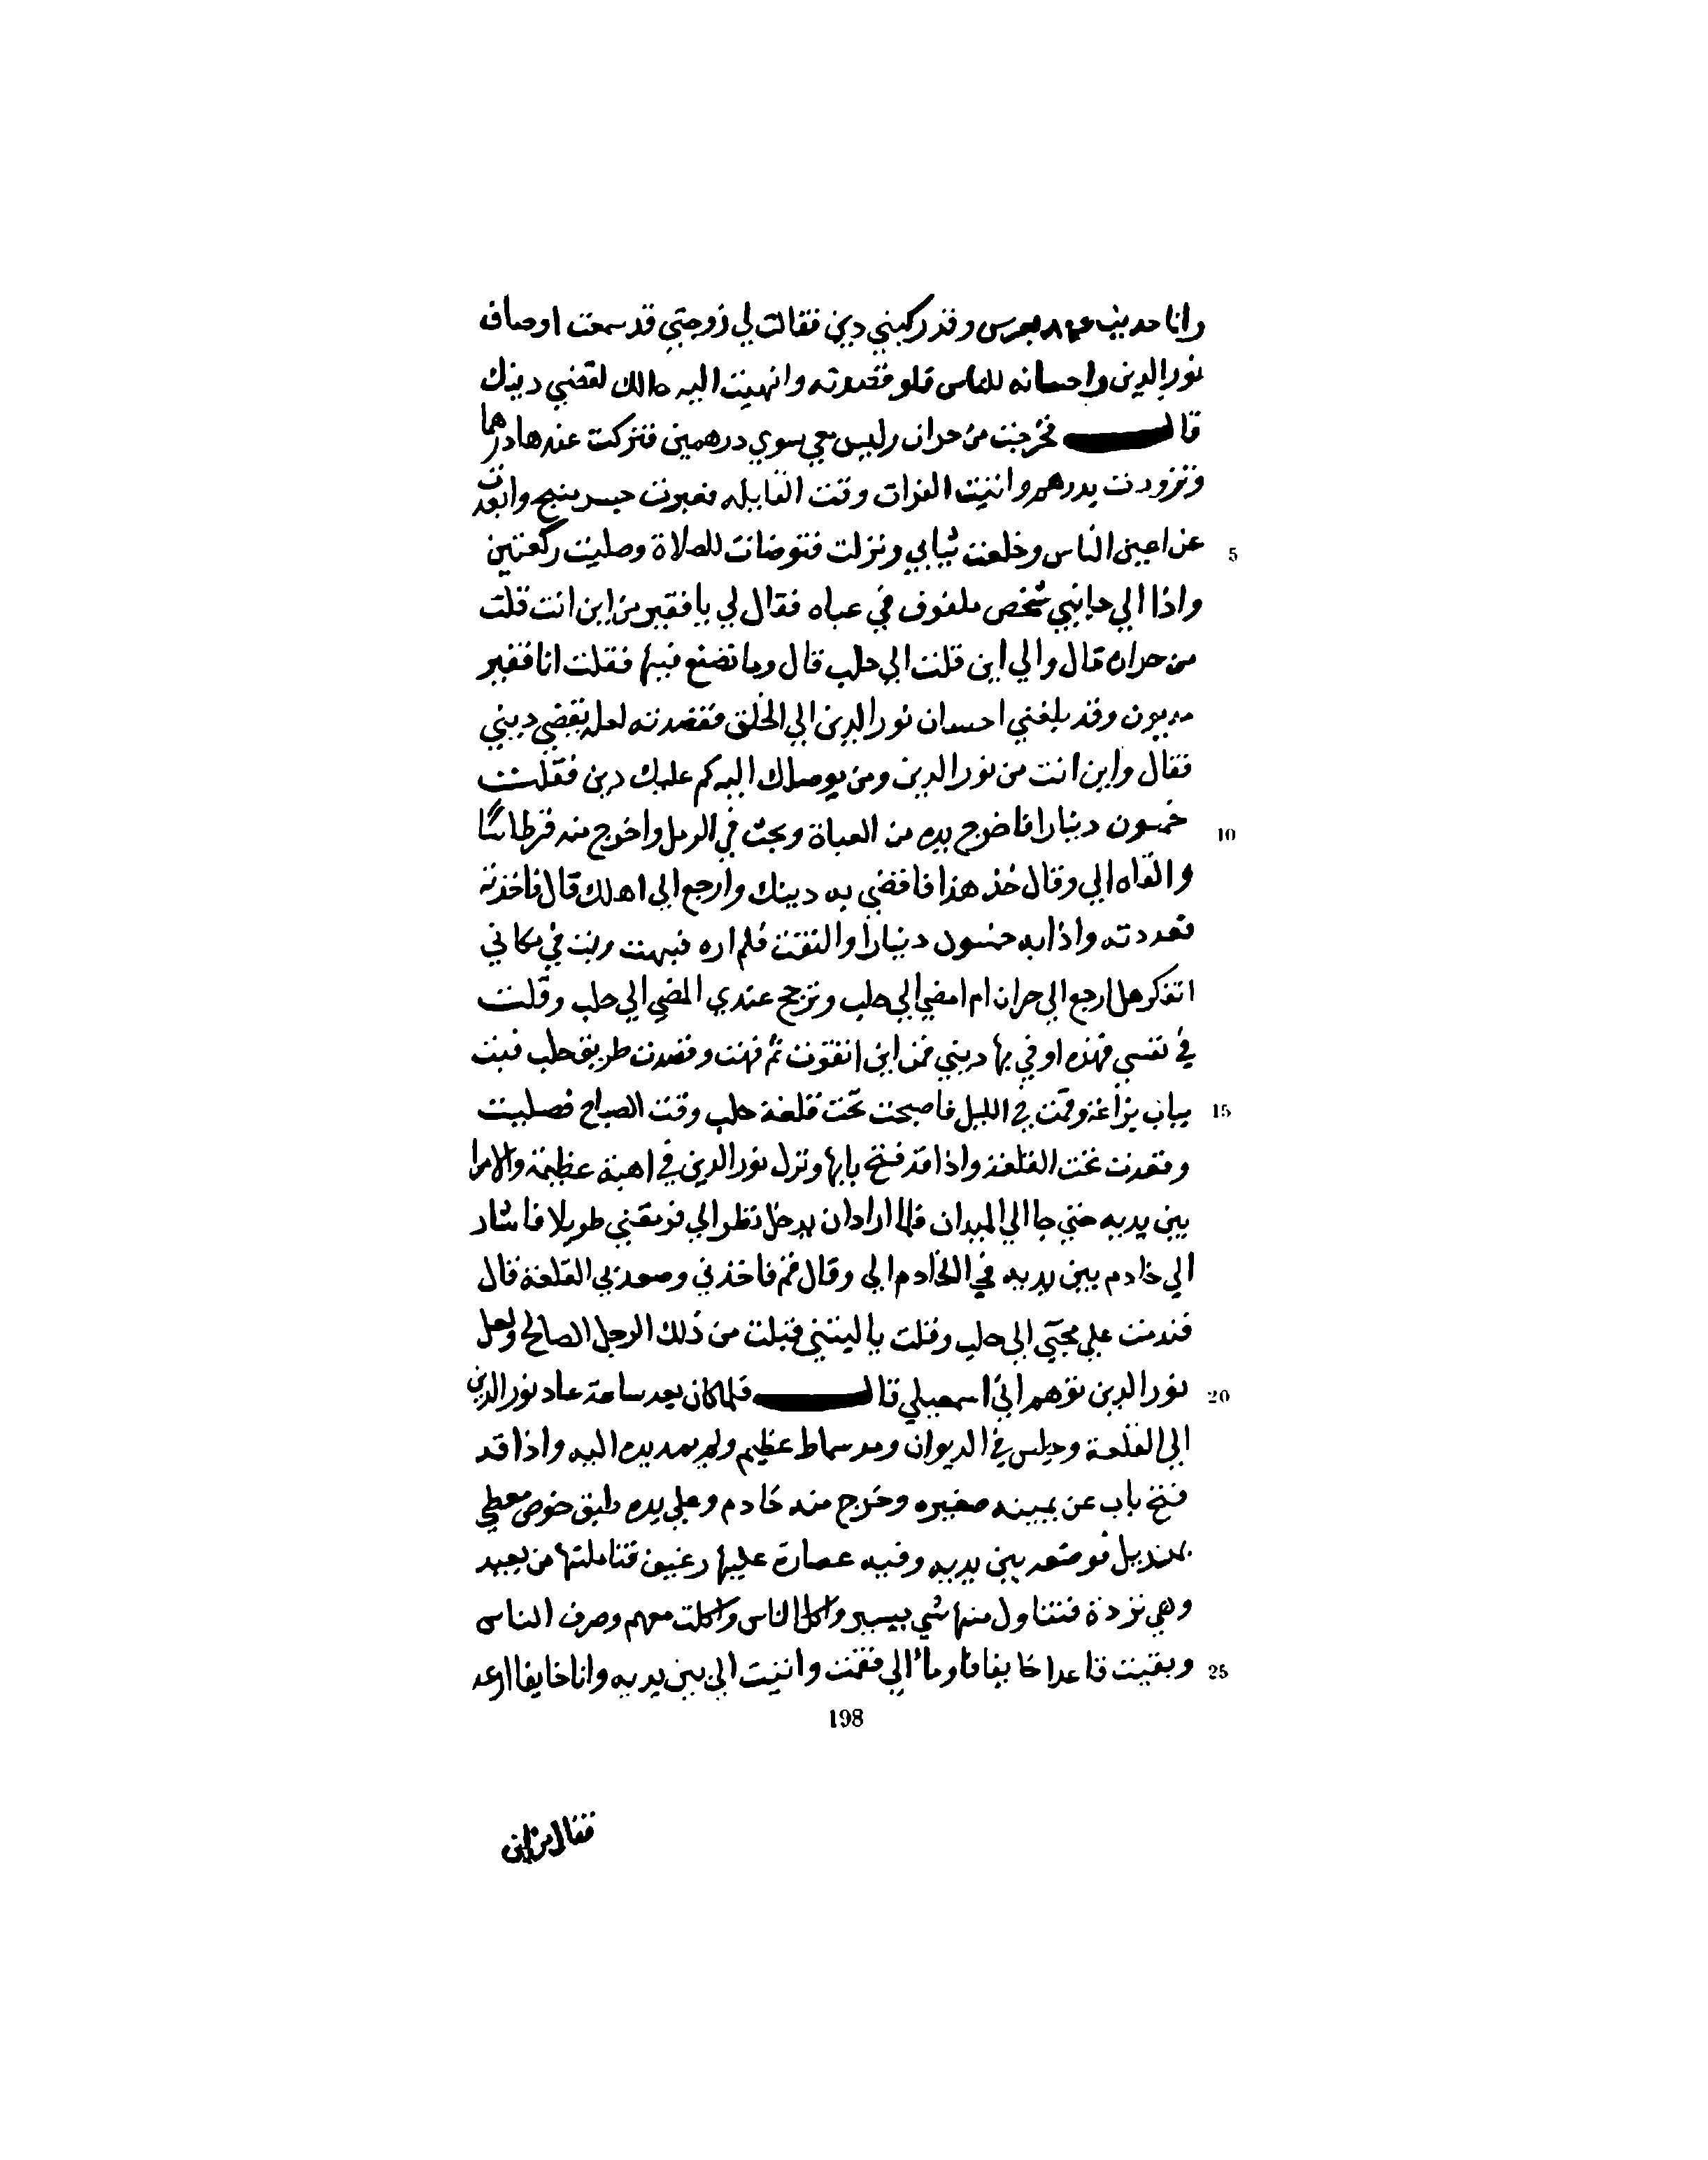 وانا حديث عهد بعرس وقد ركبني دين فقالت لي زوجتي قد سمعت اوصاف
نور الدين واحسانه للناس فلو قصدته وانهيت اليه حالك لقضي دينك
قال فخرجت من حران وليس معي سوي درهمين فتركت عندها درهما
وتزودت بدرهم واتيت الفرات وقت القايله فعبرت جسر منبج وابعدت
5 عن اعين الناس وخلعت ثيابي ونزلت فتوضات للصلاة وصليت ركعتين
واذا الي جانبي شخص ملفوف في عباه فقال لي يا فقير من اين انت قلت
من حران قال والي اين قلت الي حلب قال وما تصنع فيها فقلت انا فقير
مديون وقد بلغني احسان نور الدين الي الخلق فقصدته لعله يقضي ديني
فقال واين انت من نور الدين ومن يوصلك اليه كم عليك دين فقلت
10 خمسون دينارا فاخرج يده من العباة وبحث في الرمل واخرج منه قرطاسًا
والقاه الي وقال خذ هذا فاقضي به دينك وارجع الي اهلك قال فاخذته
فعددته واذا به خمسون دينارا والتفت فلم اره فبهت وبت في مكاني
اتفكر هل ارجع الي حران ام امضي الي حلب وترجح عندي المضي الي حلب وقلت
في نفسي فهذه اوفي بها ديني فمن اين اتقوت ثم قمت وقصدت طريق حلب فبت
15 بباب بزاغة وقمت في الليل فاصبحت تحت قلعة حلب وقت الصباح فصليت
وقعدت تحت القلعة واذا قد فتح بابها ونزل نور الدين في اهبة عظيمة والامرا
بين يديه حتي جا الي الميدان فلما اراد ان يدخل نظر الي فرمقني طويلا فاشار
الي خادم بين يديه فجا الخادم الي وقال قم فاخذني وصعد بي القلعة قال
فندمت علي مجيي الي حلب وقلت يا ليتني قبلت من ذلك الرجل الصالح ولعل
20 نور الدين توهم اني اسمعيلي قال فلما كان بعد ساعة عاد نور الدين
الي القلعة وجلس في الديوان ومد سماط عظيم ولم يمد يده اليه واذا قد
فتح باب عن يمينه صغيره وخرج منه خادم وعلي يده طبق خوص مغطي
بمنديل فوضعه بين يديه وفيه غضارة عليها رغيف فتاملتها من بعيد
وهي ثردة فتناول منها شي يسير واكل الناس واكلت معهم وصرف الناس
25 وبقيت قاعدا خايفا فاوما الي فقمت واتيت الي بين يديه وانا خايفا ارعد
198
فقال من اين